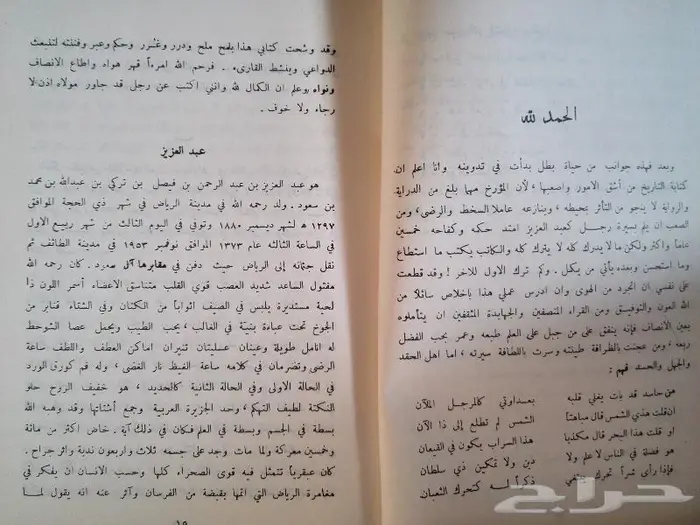 الحمد لله
وبعد فهذه جوانب من حياة بطل بدأت في تدوينه وانا اعلم ان
كتابة التاريخ من أشق الامور واصعبها، لأن المؤرخ مهما بلغ من الدراية
والرواية لا ينجو من التأثر بمحيطه، وينازعه عاملا السخط والرضى، ومن
الصعب ان يلم بسيرة رجل كعبد العزيز امتد حكمه وكفاحه خمسين
عاما واكثر ولكن ما لا يدرك كله لا يترك كله والكاتب يكتب ما استطاع
وما استحسن وبعده يأتي من يكمل. وكم ترك الاول للآخر! وقد قطعت
على نفسي ان اتجرد من الهوى وان ادرس عملي هذا باخلاص سائلا من
الله العون والتوفيق ومن القراء المنصفين والجهابذة المثقفين ان يتأملوه
بعين الانصاف فإنه ينفق على من جبل على العلم طبعه وعمر بحب الفضل
ربعه، ومن عجنت بالظرافة طينته وسرت باللطافة سيرته، اما اهل الحقد
والجهل والحسد فهم:
من حاسد قد بات يغلي قلبه بعداوتي كالمرجل الملآن
ان قلت هذي الشمس قال مباهتا الشمس لم تطلع إلى ذا الآن
او قلت هذا البحر قال مكذبا هذا السراب يكون في القيعان
هو فضلة في الناس لا علم ولا دين ولا تمكين ذي سلطان
فإذا رأى شرا تحرك ينتمي ذكرا له كتحرك الثعبان
وقد وشحت كتابي هذا بلمح ملح ودرر وغرر وحكم وعبر وفننته لتنبعث
الدواعي وينشط القارىء. فرحم الله امرءا قهر هواه واطاع الانصاف
ونواه، وعلم ان الكمال لله وانني اكتب عن رجل قد جاور مولاه اذن لا
رجاء ولا خوف.
عبد العزيز
هو عبد العزيز بن عبد الرحمن بن فيصل بن تركي بن عبدالله بن محمد
بن سعود. ولد رحمه الله في مدينة الرياض في شهر ذي الحجة الموافق
١٢٩٧ هـ لشهر ديسمبر ١٨٨٠ وتوفي في اليوم الثالث من شهر ربيع الاول
في الساعة الثالثة عام ١٣٧٣ الموافق نوفمبر ١٩٥٣ في مدينة الطائف ثم
نقل جثمانه إلى الرياض حيث دفن في مقابرها آل سعود. كان رحمه الله
مفتول الساعد شديد العصب قوي القلب متناسق الاعضاء اسمر اللون ذا
لحية مستديرة يلبس في الصيف اثوابا من الكتان وفي الشتاء قنابر من
الجوخ تحت عباءة بنية في الغالب، يحب الطيب ويحمل عصا الشوحط
له انامل طويلة وعينان عسليتان تنيران اماكن العطف واللطف ساعة
الرضى وتضرمان في كلامه ساعة الغيظ نار الغضى، وله فم كورق الورد
في الحالة الاولى وفي الحالة الثانية كالحديد، هو خفيف الروح حلو
النكتة لطيف التهكم، وحد الجزيرة العربية وجمع أشتاتها وقد وهبه الله
بسطة في الجسم وبسطة في العلم فكان في ذلك آية. خاض اكثر من مائة
وخمسين معركة ولما مات وجد على جسمه ثلاث واربعون ندبة واثر جراح.
كان عبقريا تتمثل فيه قوى الصحراء كلها وحسب الانسان ان يفكر في
مغامرة الرياض التي اتمها بقبضة من الفرسان وآثر عنه انه يقول لما
١٥
حراج